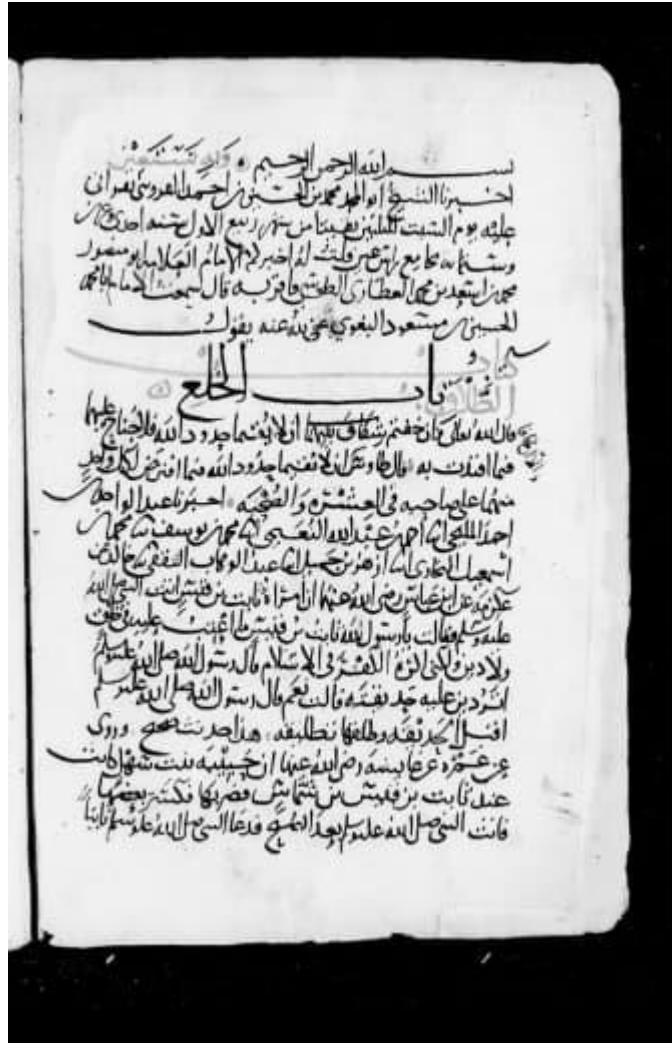 بسم الله الرحمن الرحيم وبه نستعين
اخبرنا الشيخ ابو المجد محمد بن الحسين بن احمد القزويني بقراتي
عليه يوم السبت لليلتين بقيتا من شهر ربيع الاول سنة احدى وعشرين
وستمايه بجامع راس عين قلت له اخبركم الامام العلامه ابو منصور
محمد بن اسعد بن محمد العطاري الطوسي فاقر به قال سمعت الامام ابا محمد
الحسين بن مسعود البغوي رضي الله عنه يقول
كتاب الطلاق
باب الخلع
قال الله تعالى فان خفتم ان لا يقيما حدود الله فلا جناح عليهما
فيما افتدت به قال طاوس ان لا يقيما حدود الله فيما افترض لكل واحد
منهما على صاحبه في العشرة والصحبه اخبرنا عبد الواحد بن
احمد المليحي انا احمد بن عبد الله النعيمي انا محمد بن يوسف نا محمد بن
اسمعيل البخاري انا ازهر بن جميل انا عبد الوهاب الثقفي نا خالد عن
عكرمه عن ابن عباس رضي الله عنهما ان امراة ثابت بن قيس اتت النبي صلى الله
عليه وسلم فقالت يا رسول الله ثابت بن قيس ما اعتب عليه في خلق
ولا دين ولكني اكره الكفر في الاسلام قال رسول الله صلى الله عليه وسلم
اتردين عليه حديقته قالت نعم قال رسول الله صلى الله عليه وسلم
اقبل الحديقه وطلقها تطليقه هذا حديث صحيح وروي
عن عمرة عن عايشه رضي الله عنها ان حبيبه بنت سهل كانت
عند ثابت بن قيس بن شماس فضربها فكسر بعضها
فاتت النبي صلى الله عليه وسلم بعد الصبح فدعا النبي صلى الله عليه وسلم ثابتا